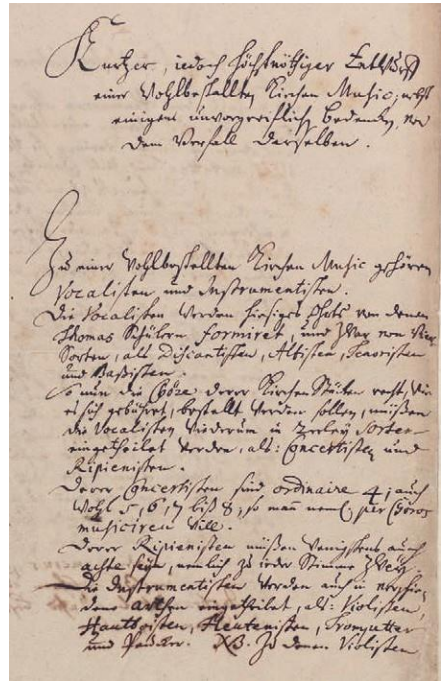 Kurtzer, iedoch höchstnöthiger Entwurff
einer wohlbestallten Kirchen Music; nebst
einigem unvorgreiflichen Bedencken von
dem Verfall derselben.
Zu einer wohlbestellten Kirchen Music gehören
Vocalisten und Instrumentisten.
Die Vocalisten werden hiesiges Ohrts von denen
Thomas Schülern formiret, und zwar von vier
Sorten, als Discantisten, Altisten, Tenoristen
und Baßisten.
So nun die Chöre derer Kirchen Stücken recht, wie
es sich gebühret, bestellt werden sollen, müßen
die Vocalisten wiederum in zweyerley Sorten
eingetheilet werden, als: Concertisten und
Ripienisten.
Derer Concertisten sind ordinaire 4; auch
wohl 5, 6, 7 biß 8; so mann nemlich per Choros
musiciren will.
Derer Ripienisten müßen wenigstens auch
achte seyn, nemlich zu ieder Stimme zwey.
Die Instrumentisten werden auch in verschie-
dene arthen eingetheilet, als: Violisten,
Hautboisten, Fleutenisten, Trompetter
und Paucker. NB. Zu denen Violisten